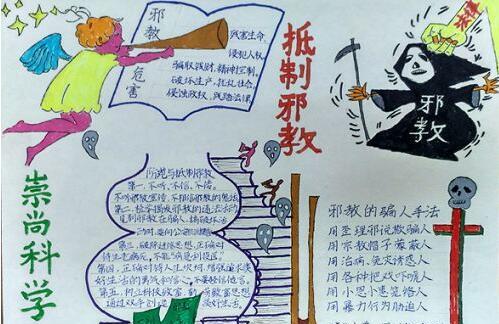 邪教
危害
残害生命,
侵犯人权,
骗取钱财,精神控制,
破坏生产,扰乱社会,
侵蚀政权,践踏法律
抵制邪教
法律
邪教
崇尚科学
防范与抵制邪教
第一,不听、不信、不传。
不听邪教宣传,不相信邪教的鬼话
第三,破除迷信思想,正确对
邪教的骗人手法
用歪理邪说欺骗人
用宗教帽子蒙蔽人
用治病、免灾诱惑人
用各种把戏吓唬人
用小恩小惠笼络人
用暴力行为胁迫人